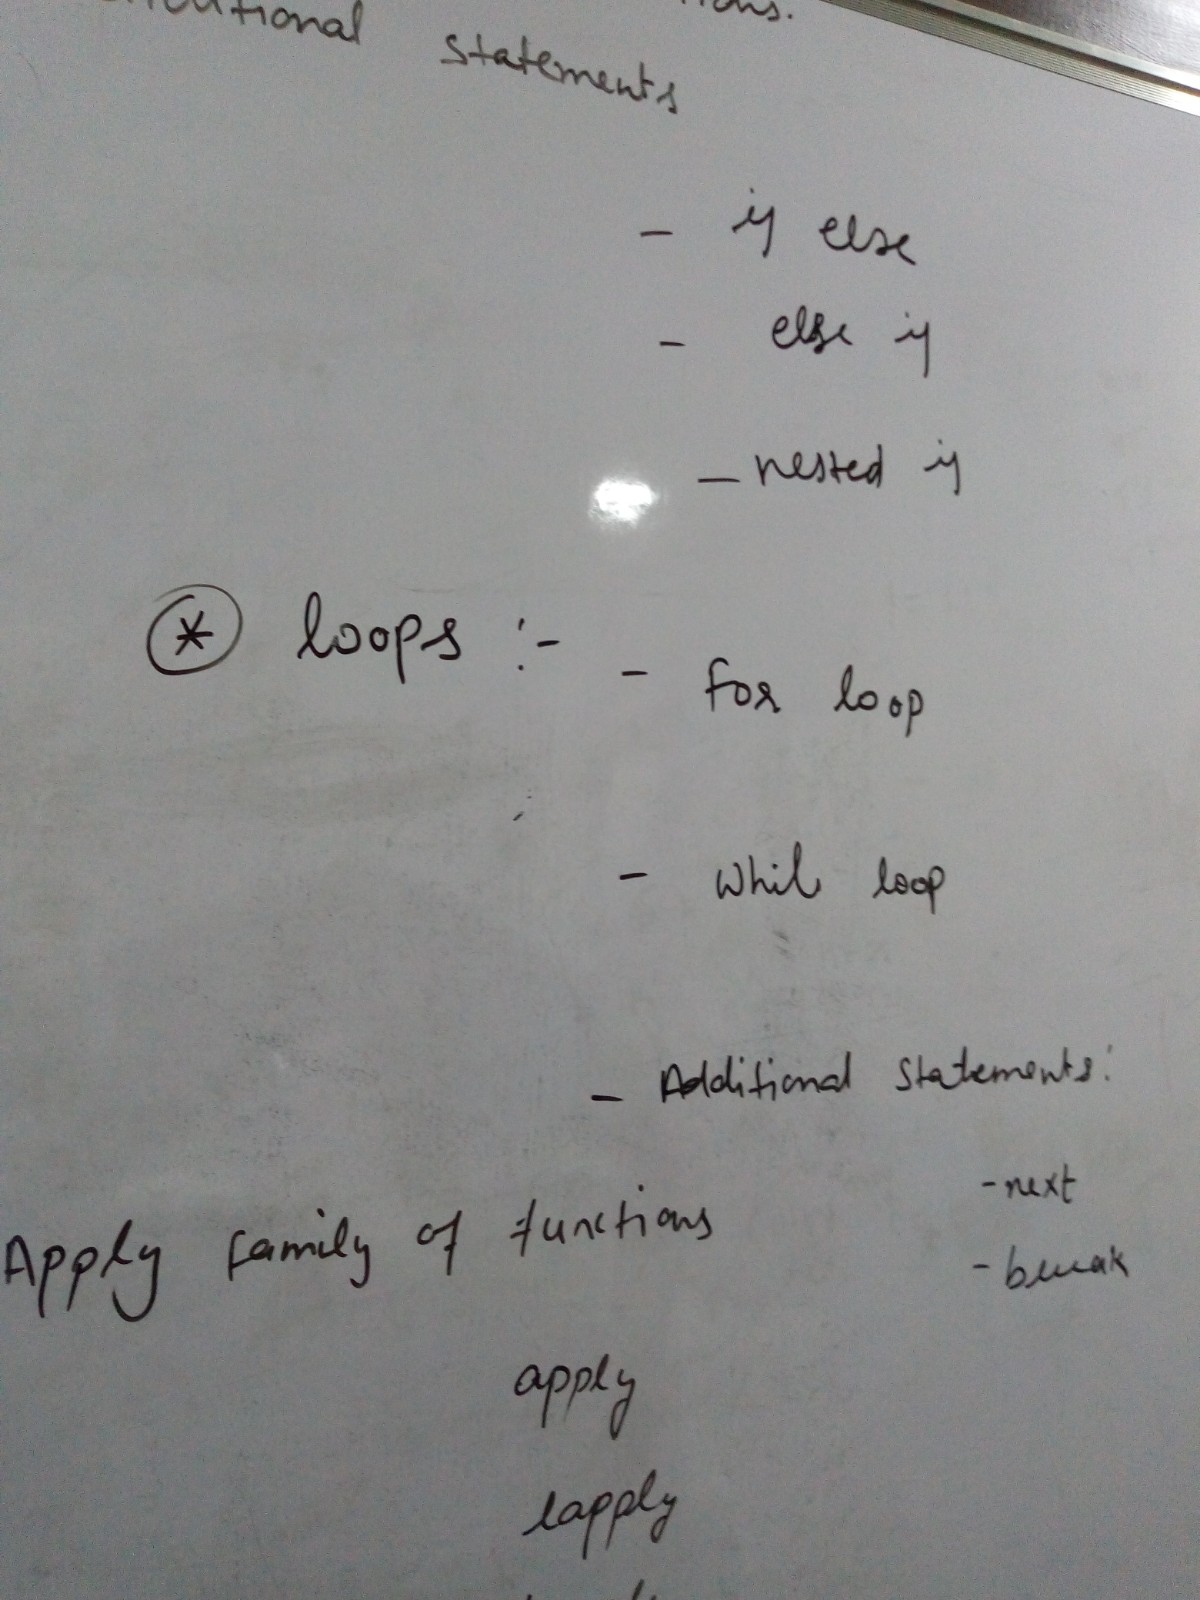 statements
- if else
- else if
- nested if
* loops :-
- for loop
- while loop
- Additional statements:
- next
- break
Apply family of functions
apply
lapply